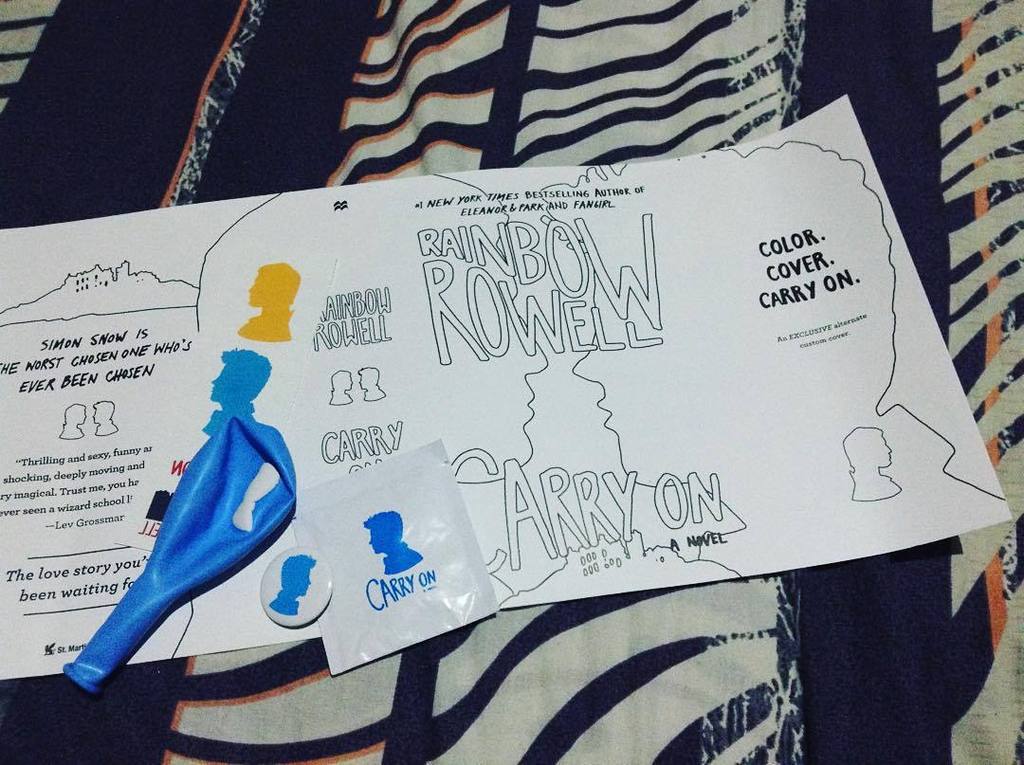 SIMON SNOW IS
THE WORST CHOSEN ONE WHO'S
EVER BEEN CHOSEN
"Thrilling and sexy, funny
shocking, deeply moving and
magical. Trust me, you
ever seen a wizard school
—Lev Grossmar
The love story you'
been waiting
St.
RAINBOW
ROWELL
CARRY
ON
#1 NEW YORK TIMES BESTSELLING AUTHOR OF
ELEANOR & PARK AND FANGIRL
RAINBOW
ROWELL
CARRY ON
A NOVEL
COLOR.
COVER.
CARRY ON.
An EXCLUSIVE alternate
custom cover.
CARRY ON